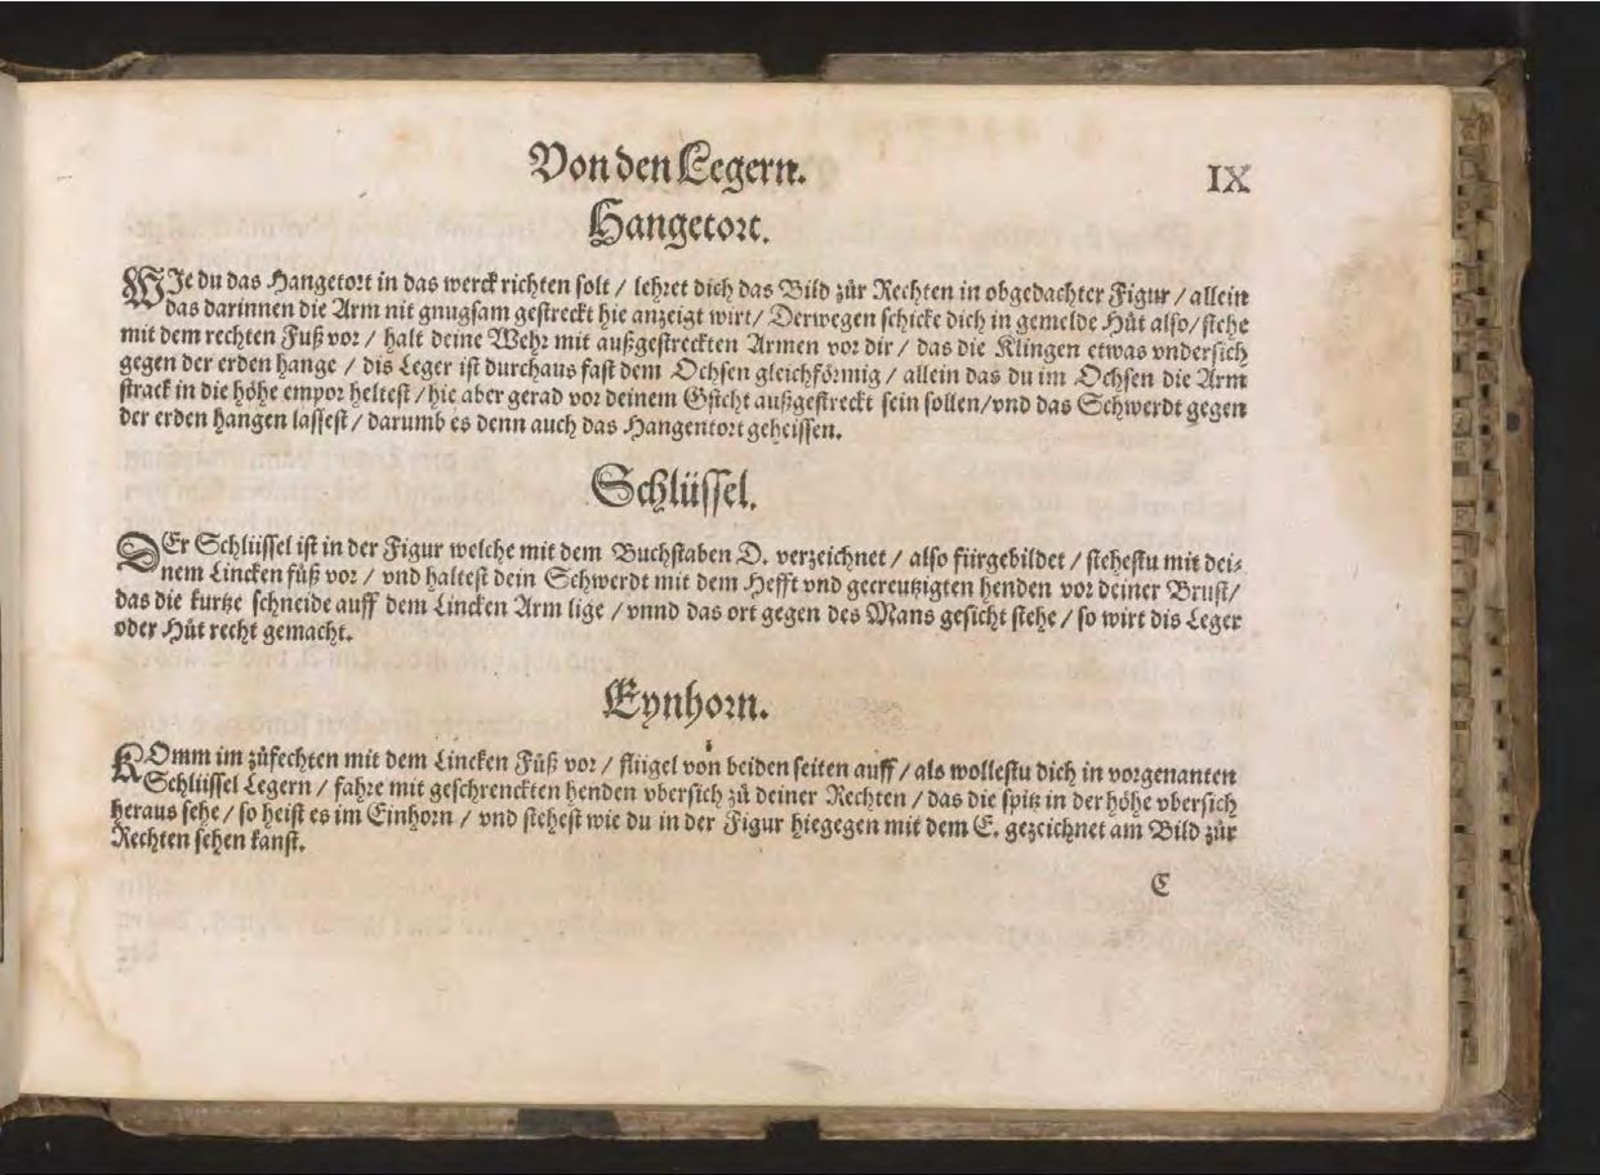 Von den Legern.
IX
Hangetort.
WJe du das Hangetort in das werck richten solt / lehret dich das Bild zůr Rechten in obgedachter Figur / allein
das darinnen die Arm nit gnugsam gestreckt hie anzeigt wirt / Derwegen schicke dich in gemelde Hůt also / stehe
mit dem rechten Fuß vor / halt deine Wehr mit außgestreckten Armen vor dir / das die Klingen etwas vndersich
gegen der erden hange / dis Leger ist durchaus fast dem Ochsen gleichförmig / allein das du im Ochsen die Arm
strack in die höhe empor heltest / hie aber gerad vor deinem Gsicht außgestreckt sein sollen / vnd das Schwerdt gegen
der erden hangen lassest / darumb es denn auch das Hangentort geheissen.
Schlüssel.
DEr Schlüssel ist in der Figur welche mit dem Buchstaben D. verzeichnet / also fürgebildet / stehestu mit dei⸗
nem Lincken fůß vor / vnd haltest dein Schwerdt mit dem Hefft vnd gecreutzigten henden vor deiner Brust /
das die kurtze schneide auff dem Lincken Arm lige / vnnd das ort gegen des Mans gesicht stehe / so wirt dis Leger
oder Hůt recht gemacht.
Eynhorn.
KOmm im zůfechten mit dem Lincken Fůß vor / flügel von beiden seiten auff / als wollestu dich in vorgenanten
Schlüssel Legern / fahre mit geschrenckten henden vbersich zů deiner Rechten / das die spitz in der höhe vbersich
heraus sehe / so heist es im Einhorn / vnd stehest wie du in der Figur hiegegen mit dem E. gezeichnet am Bild zůr
Rechten sehen kanst.
C